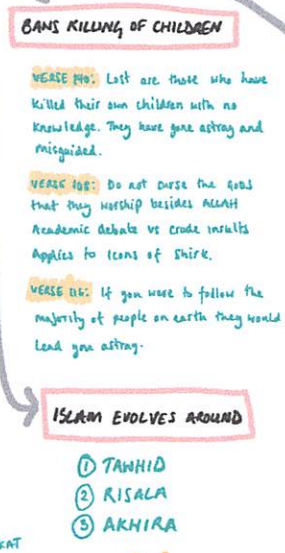 BANS KILLING OF CHILDREN
VERSE 140: Lost are those who have
killed their own children with no
knowledge. They have gone astray and
misguided.
VERSE 108: Do not curse the Gods
that they worship besides ALLAH
Academic debate vs crude insults
Applies to Icons of Shirk.
VERSE 116: If you were to follow the
majority of people on earth they would
lead you astray.
ISLAM EVOLVES AROUND
① TAWHID
② RISALA
③ AKHIRA
KAT